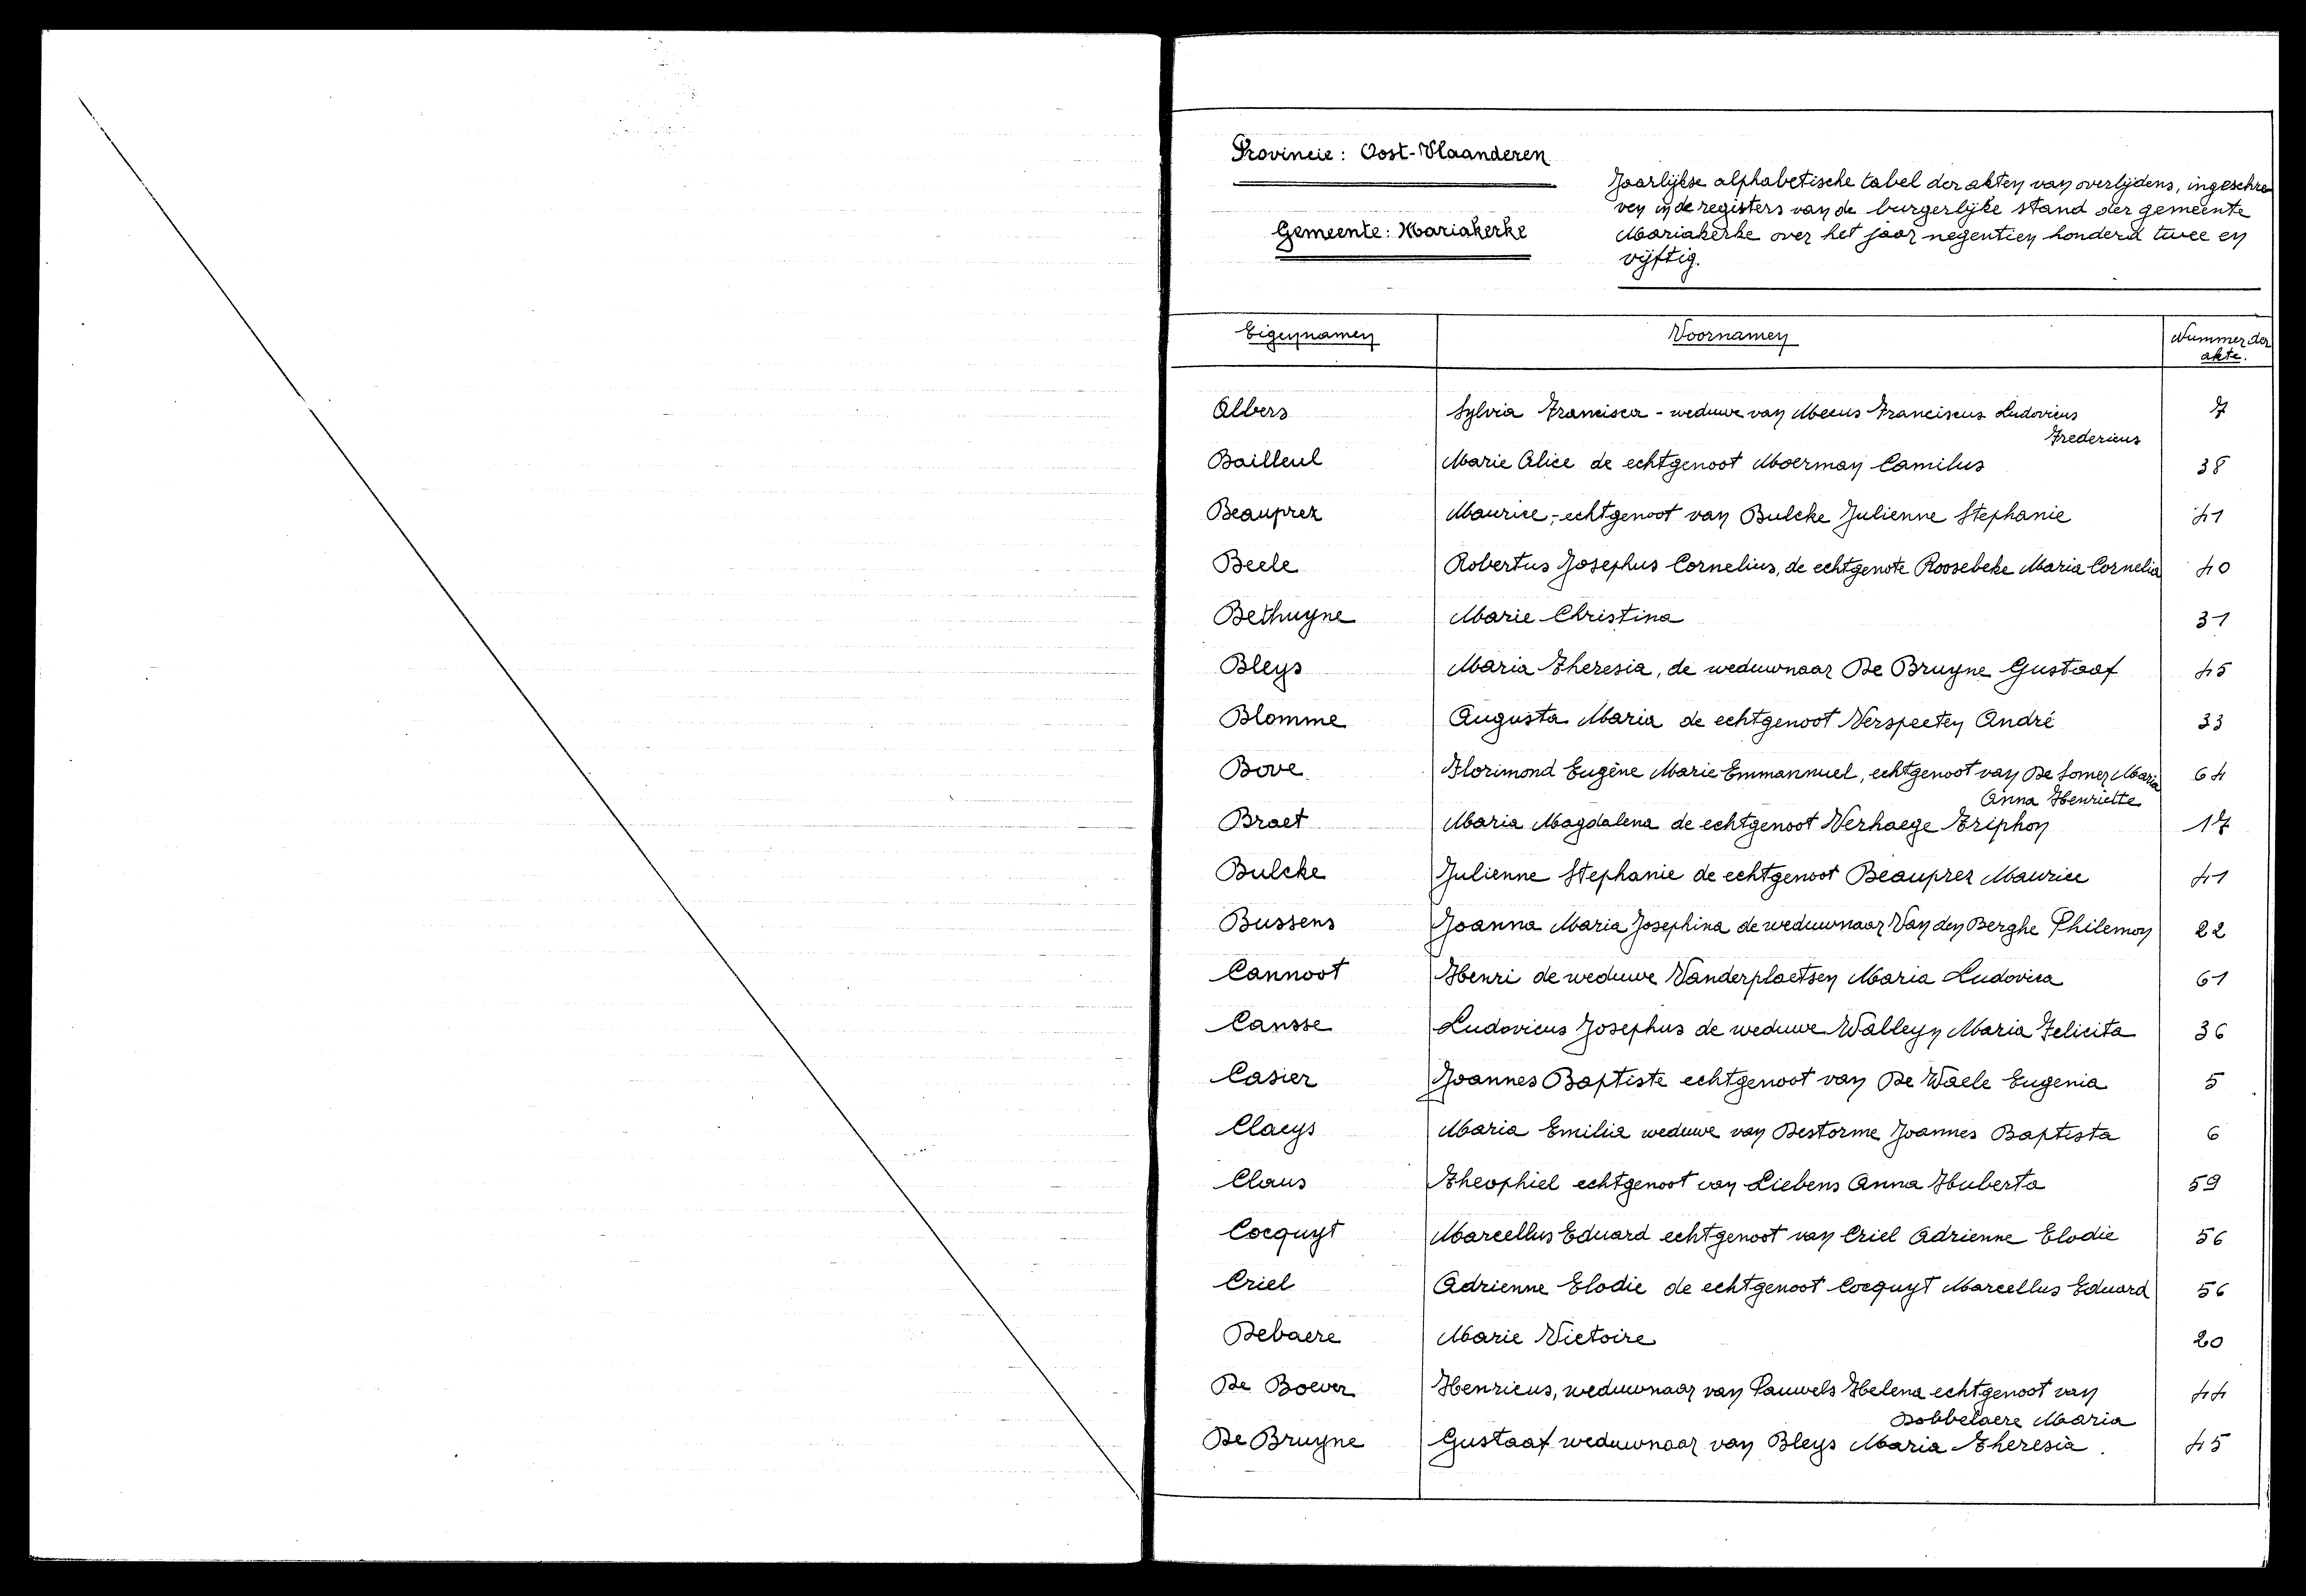 Provincie: Oost-Vlaanderen
Gemeente: Mariakerke
Jaarlijkse alphabetische tabel der akten van overlijdens, ingeschre
ven in de registers van de burgerlijke stand der gemeente
Mariakerke over het jaar negentien honderd twee en
vijftig.
Eigennamen Voornamen Nummer der
akte.
Albers Sylvia Francisca - weduwe van Meeus Franciscus Ludovicus 7
Fredericus
Bailleul Marie Alice de echtgenoot Moerman Camilus 38
Beauprez Maurice,- echtgenoot van Bulcke Julienne Stephanie 41
Beele Robertus Josephus Cornelius, de echtgenote Roosebeke Maria Cornelia 40
Bethuyne Marie Christina 31
Bleys Maria Theresia, de weduwnaar De Bruyne Gustaaf 45
Blomme Augusta Maria de echtgenoot Verspeeten André 33
Bove Florimond Eugène Marie Emmannuel, echtgenoot van De Somer Maria 64
Anna Henriette
Braet Maria Magdalena de echtgenoot Verhaege Triphon 17
Bulcke Julienne Stephanie de echtgenoot Beauprez Maurice 41
Bussens Joanna Maria Josephina de weduwnaar Van den Berghe Philemon 22
Cannoot Henri de weduwe Vanderplaetsen Maria Ludovica 61
Cansse Ludovicus Josephus de weduwe Walleyn Maria Felicita 36
Casier Joannes Baptiste echtgenoot van De Waele Eugenia 5
Claeys Maria Emilia weduwe van Destorme Joannes Baptista 6
Claus Theophiel echtgenoot van Liebens Anna Huberta 59
Cocquyt Marcellus Eduard echtgenoot van Criel Adrienne Elodie 56
Criel Adrienne Elodie de echtgenoot Cocquyt Marcellus Eduard 56
Debaere Marie Victoire 20
De Boever Henricus, weduwnaar van Pauwels Helena echtgenoot van 44
Dobbelaere Maria
De Bruyne Gustaaf weduwnaar van Bleys Maria Theresia. 45